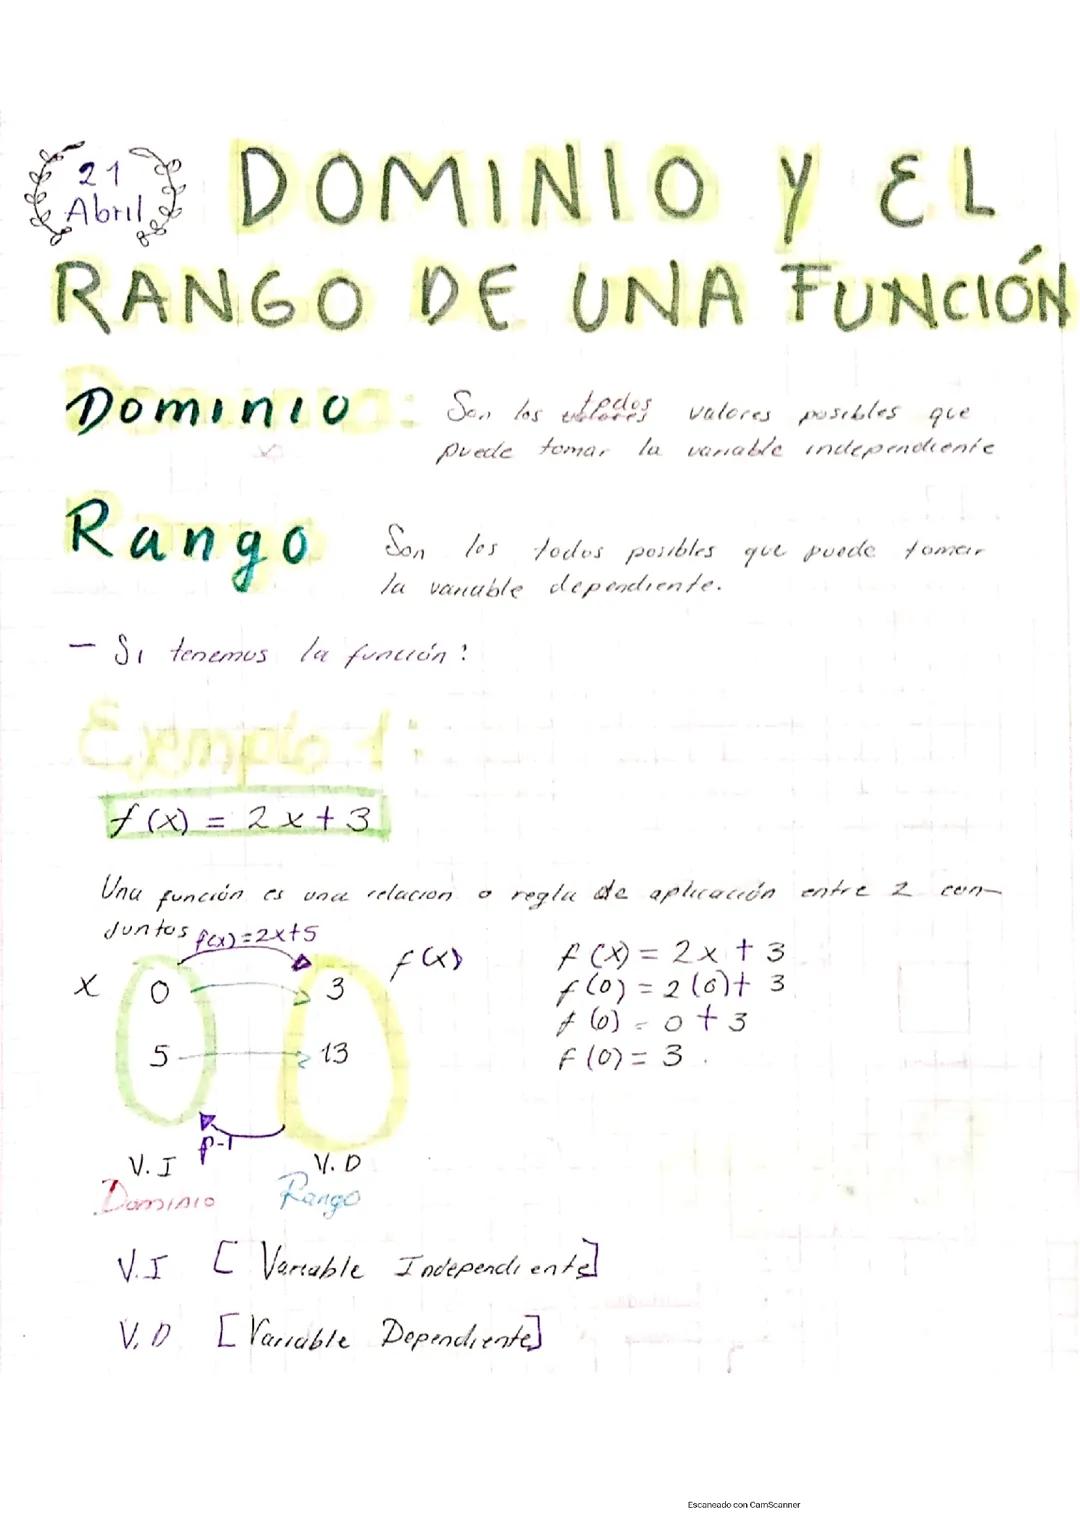 21
Abril
DOMINIO Y EL
RANGO DE UNA FUNCIÓN
Dominio: Son los todos valores posibles que
puede tomar la variable independiente
Rango Son los todos posibles que puede tomar
la variable dependiente.
- Si tenemos la función:
Ejemplo 1:
f(x) = 2x+3
Una función es una relacion o regla de aplicación entre 2 con-
juntos
f(x)=2x+5
x f(x)
0 3
5 13
f-1
V.I V.D
Dominio Rango
f(x) = 2x + 3
f(0) = 2(0)+ 3
f(0) = 0 + 3
f(0) = 3.
V.I [Variable Independiente]
V.D [Variable Dependiente]
Escaneado con CamScanner